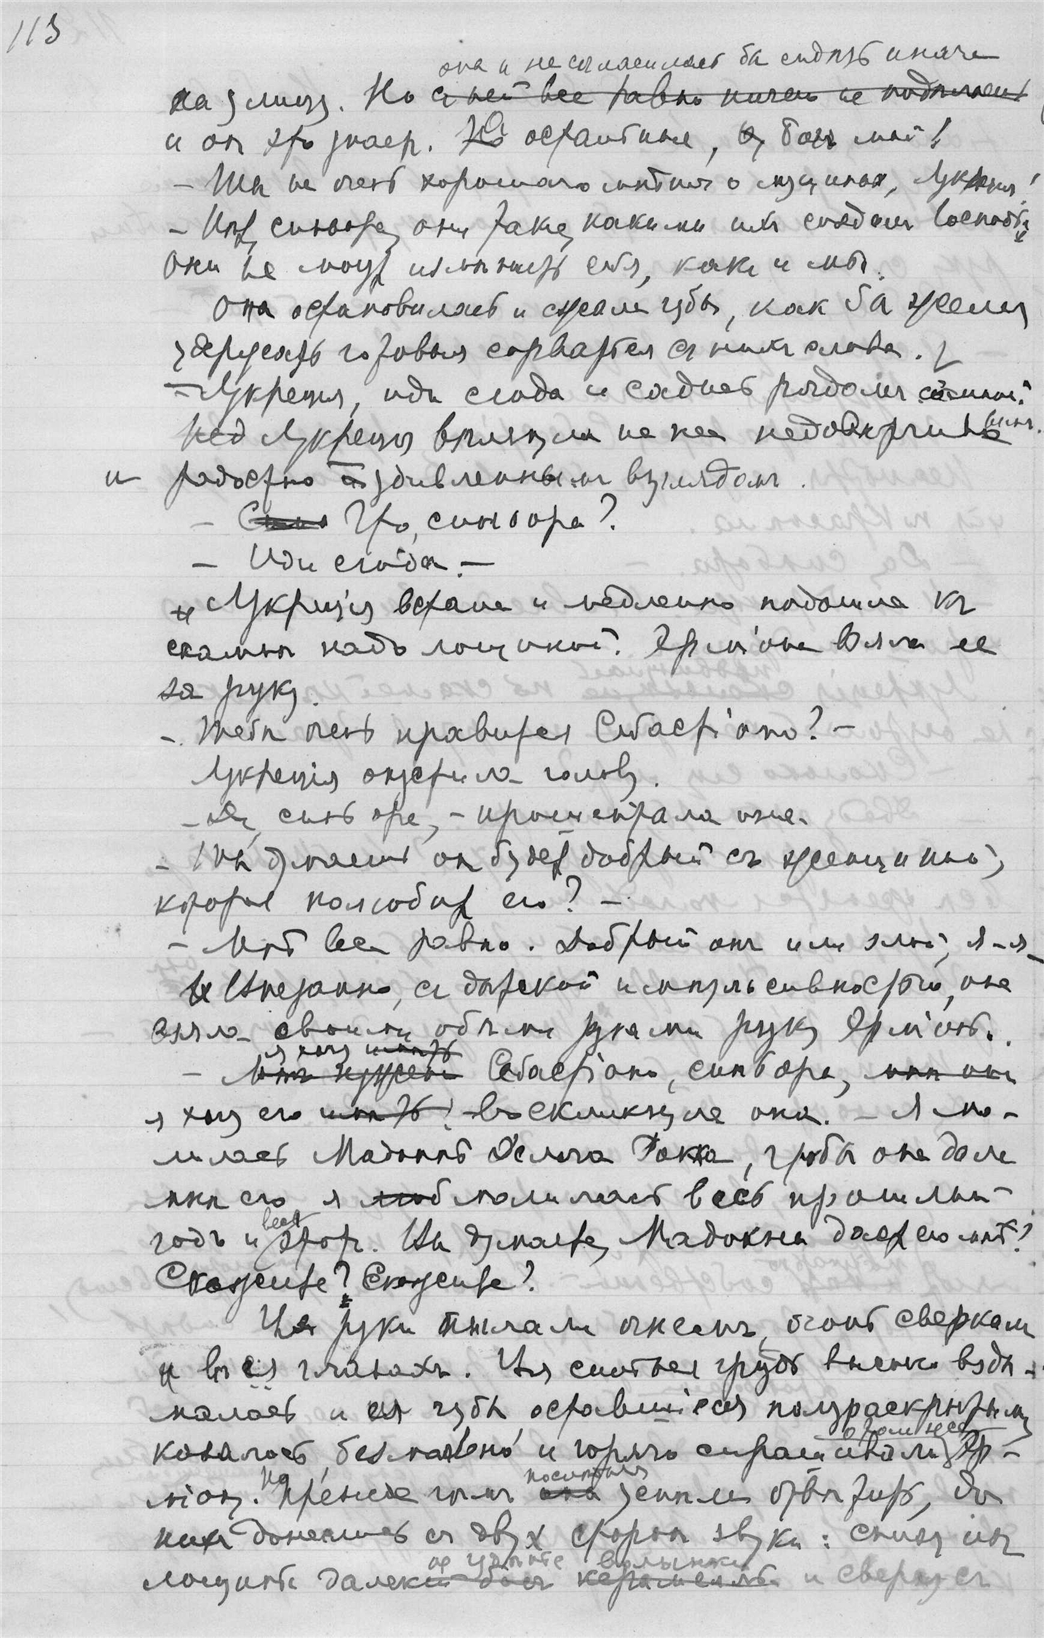 113
она и не согласилась бы сидѣть иначе
на улицу. Но с ней все равно ничего не подѣлаешь
и он это знает. Но останьтесь, о, Боже мой!
— Ты не очень хорошаго мнѣнія о мущинах, Лукреція!
— Нѣт, синьора, они такіе, какими их создал Господь,
Они не могут измѣнить себя, как и мы.
Она остановилась и сжала губы, как бы желая
удержать готовыя сорваться с них слова.
— Лукреція, иди сюда и садись рядом со мной.
Лукреція взглянула на нее недовѣрчивым
и радостно удивленным взглядом.
— Что, синьора?
— Иди сюда. —
Лукреція встала и медленно подошла къ
скамьѣ надъ лощиной. Эрміона взяла ее
за руку.
— Тебѣ очень нравится Себастіано? —
Лукреція опустила голову.
— Да, синьора, — прошептала она.
— Ты думаешь он будет добрый съ женщиной,
которая полюбит его? —
— Мнѣ все равно. Добрый он или злой, я — я —
Внезапно, с дѣтской импульсивностью, она
взяла своими обѣими руками руку Эрміоны.
— Мнѣ нужен Себастіано, синьора,
я хочу его имѣть! — воскликнула она. — Я мо-
лилась Мадоннѣ Делла Рокка, чтобы она дала
мнѣ его я молилась весь прошлый
годъ и весь этот. Вы думаете, Мадонна даст его мнѣ?
Скажите? Скажите?
Ея руки пылали огнемъ, огонь сверкал
и въ ея глазахъ. Ея сильная грудь высоко взды-
малась и ея губы оставшіеся полураскрытыми
казалось безмолвно и горячо спрашивали Эр-
міону. Но прежде чѣмъ послѣдняя успѣла отвѣтить, до
них донеслись съ двух сторон звуки: снизу из
лощины далекій волынки и сверху съ